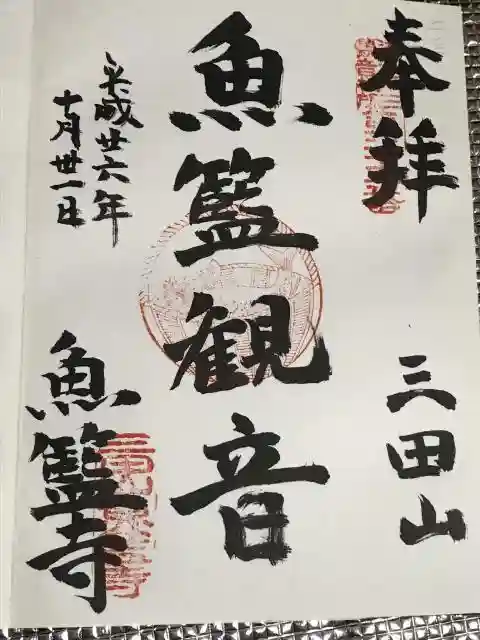 奉拝
三田山
魚籃観音
平成廿六年
十月卅一日
魚籃寺